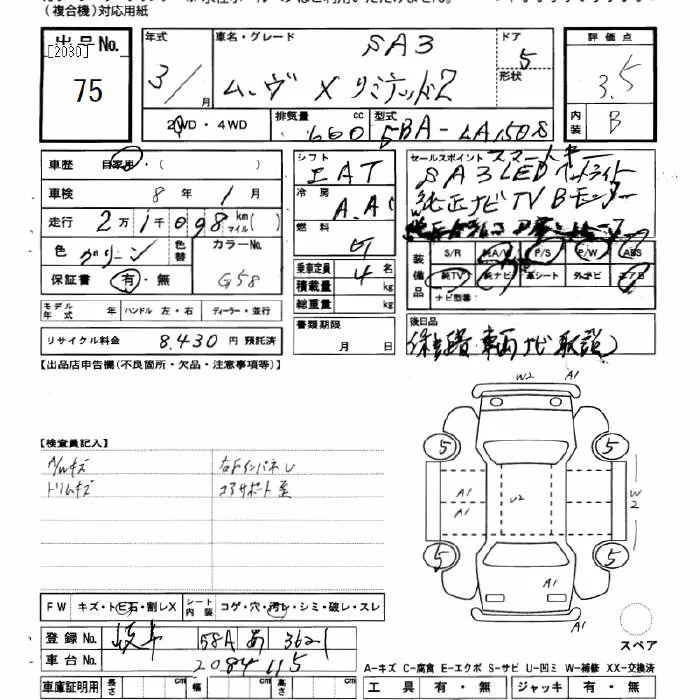 (複合機)対応用紙
出品No. 年式 車名・グレード SA3 ドア 5 評価点
[2030] 75 3/ 月 ムーヴ X リミテッド2 形状 3.5
2WD・4WD 排気量 660 cc 型式 5BA-LA150S 内装 B
車歴 自家用・( )
シフト IAT セールスポイント スマートキー
車検 8 年 1 月 冷房 A.AC SA3 LED ヘッドライト
走行 2万1千098 km マイル( ) 純正ナビ TV Bモニター
色 グリーン 色替 カラーNo. G58 燃料
装備品 S/R A/W P/S P/W ABS
保証書 有・無 乗車定員 4 名 純TV 純ナビ 革シート 外ナビ エアB
積載量 kg ナビ型番:
モデル年式 年 ハンドル 左・右 ディーラー・並行 総重量 kg
リサイクル料金 8,430 円 預託済 書類期限 月 日 後日品
保証書 車両 ナビ 取説
【出品店申告欄(不良箇所・欠品・注意事項等)】
W2 A1
【検査員記入】
A/Wキズ 右Fインパネ U
トリムキズ コアサポート
5 5
A1 A1 U2 W2
5 5
A1
A1
FW キズ・トビ石・割レX シート内装 コゲ・穴・汚レ・シミ・破レ・スレ
スペア
登録No. 岐阜 58A あ 3621
車台No. 2084115
A-キズ C-腐食 E-エクボ S-サビ U-凹ミ W-補修 XX-交換済
車庫証明用 長さ cm 幅 cm 高さ cm 工具 有・無 ジャッキ 有・無